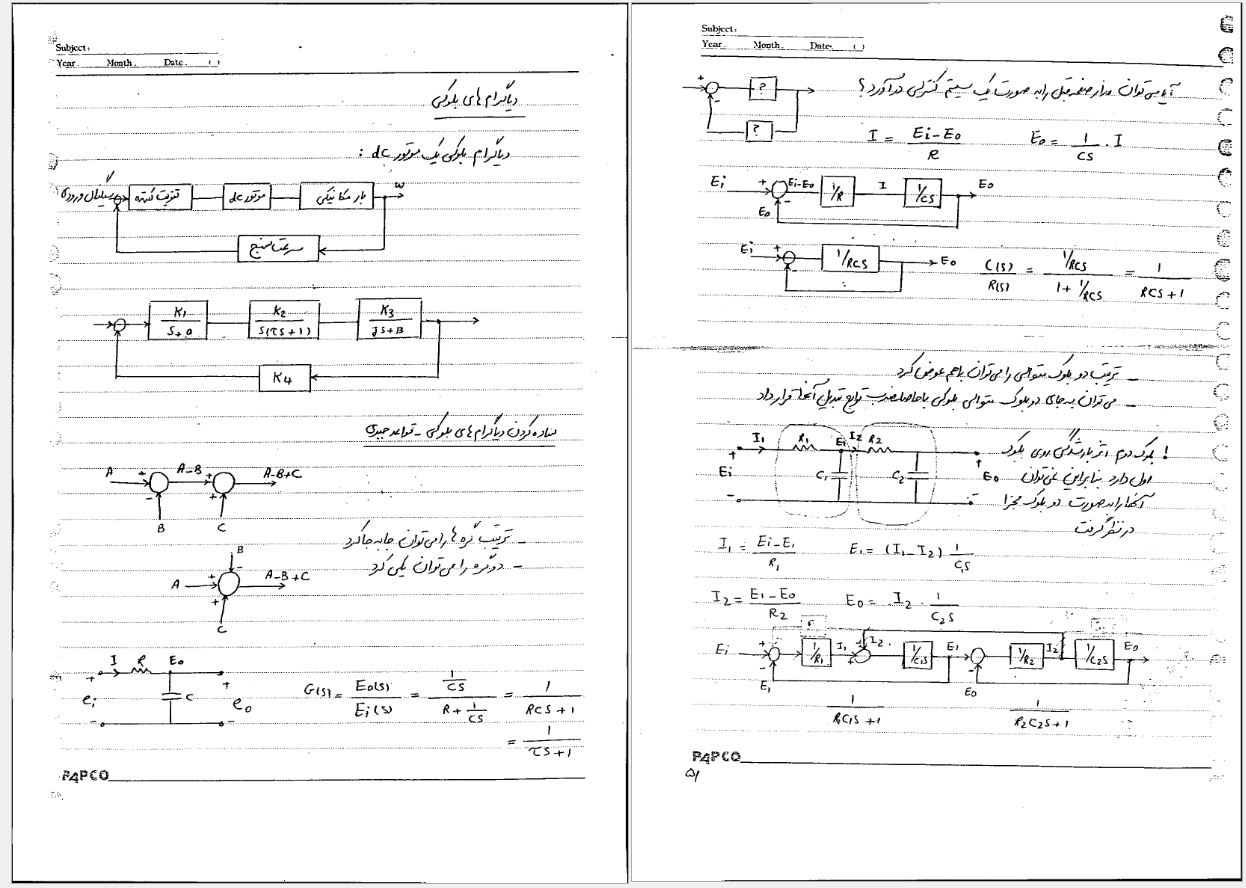 Subject:
Year. Month. Date. ( )
دیاگرام های بلوکی
دیاگرام بلوکی یک موتور dc :
سیگنال ورودی
تقویت کننده
موتور dc
بار مکانیکی
ω
سرعت سنج
K1 / S+a
K2 / S(τS+1)
K3 / JS+B
K4
ساده کردن دیاگرام های بلوکی - قواعد جبری
A + A-B + A-B+C
- +
B C
B
-
A + A-B+C
+
C
- ترتیب گره ها را می توان جابه جا کرد
- دو گره را می توان یکی کرد
I R Eo
+ +
ei C eo
- -
G(s) = Eo(s) / Ei(s) = (1/CS) / (R + 1/CS) = 1 / (RCS+1)
= 1 / (τS+1)
PAPCO
Subject:
Year. Month. Date. ( )
آیا می توان مدار صفحه قبل را به صورت یک سیستم کنترلی درآورد؟
+ - ?
?
I = (Ei-Eo) / R Eo = 1/CS . I
Ei + Ei-Eo 1/R I 1/CS Eo
Eo -
Ei + 1/RCS Eo
-
C(S) / R(S) = (1/RCS) / (1 + 1/RCS) = 1 / (RCS+1)
- ترتیب دو بلوک متوالی را می توان باهم عوض کرد
- می توان به جای دو بلوک متوالی بلوکی با حاصلضرب توابع تبدیل آنها قرار داد
+ I1 R1 E1 I2 R2
Ei C1 C2 Eo
- -
! بلوک دوم اثر بارشدگی روی بلوک
اول دارد بنابراین نمی توان
آنها را به صورت دو بلوک مجزا
در نظر گرفت
I1 = (Ei-E1) / R1 E1 = (I1-I2) 1/C1S
I2 = (E1-Eo) / R2 Eo = I2 . 1/C2S
Ei + 1/R1 I1 + I2 1/C1S E1 + 1/R2 I2 1/C2S Eo
- - -
E1 Eo
1 / (R1C1S+1) 1 / (R2C2S+1)
PAPCO
۵۱